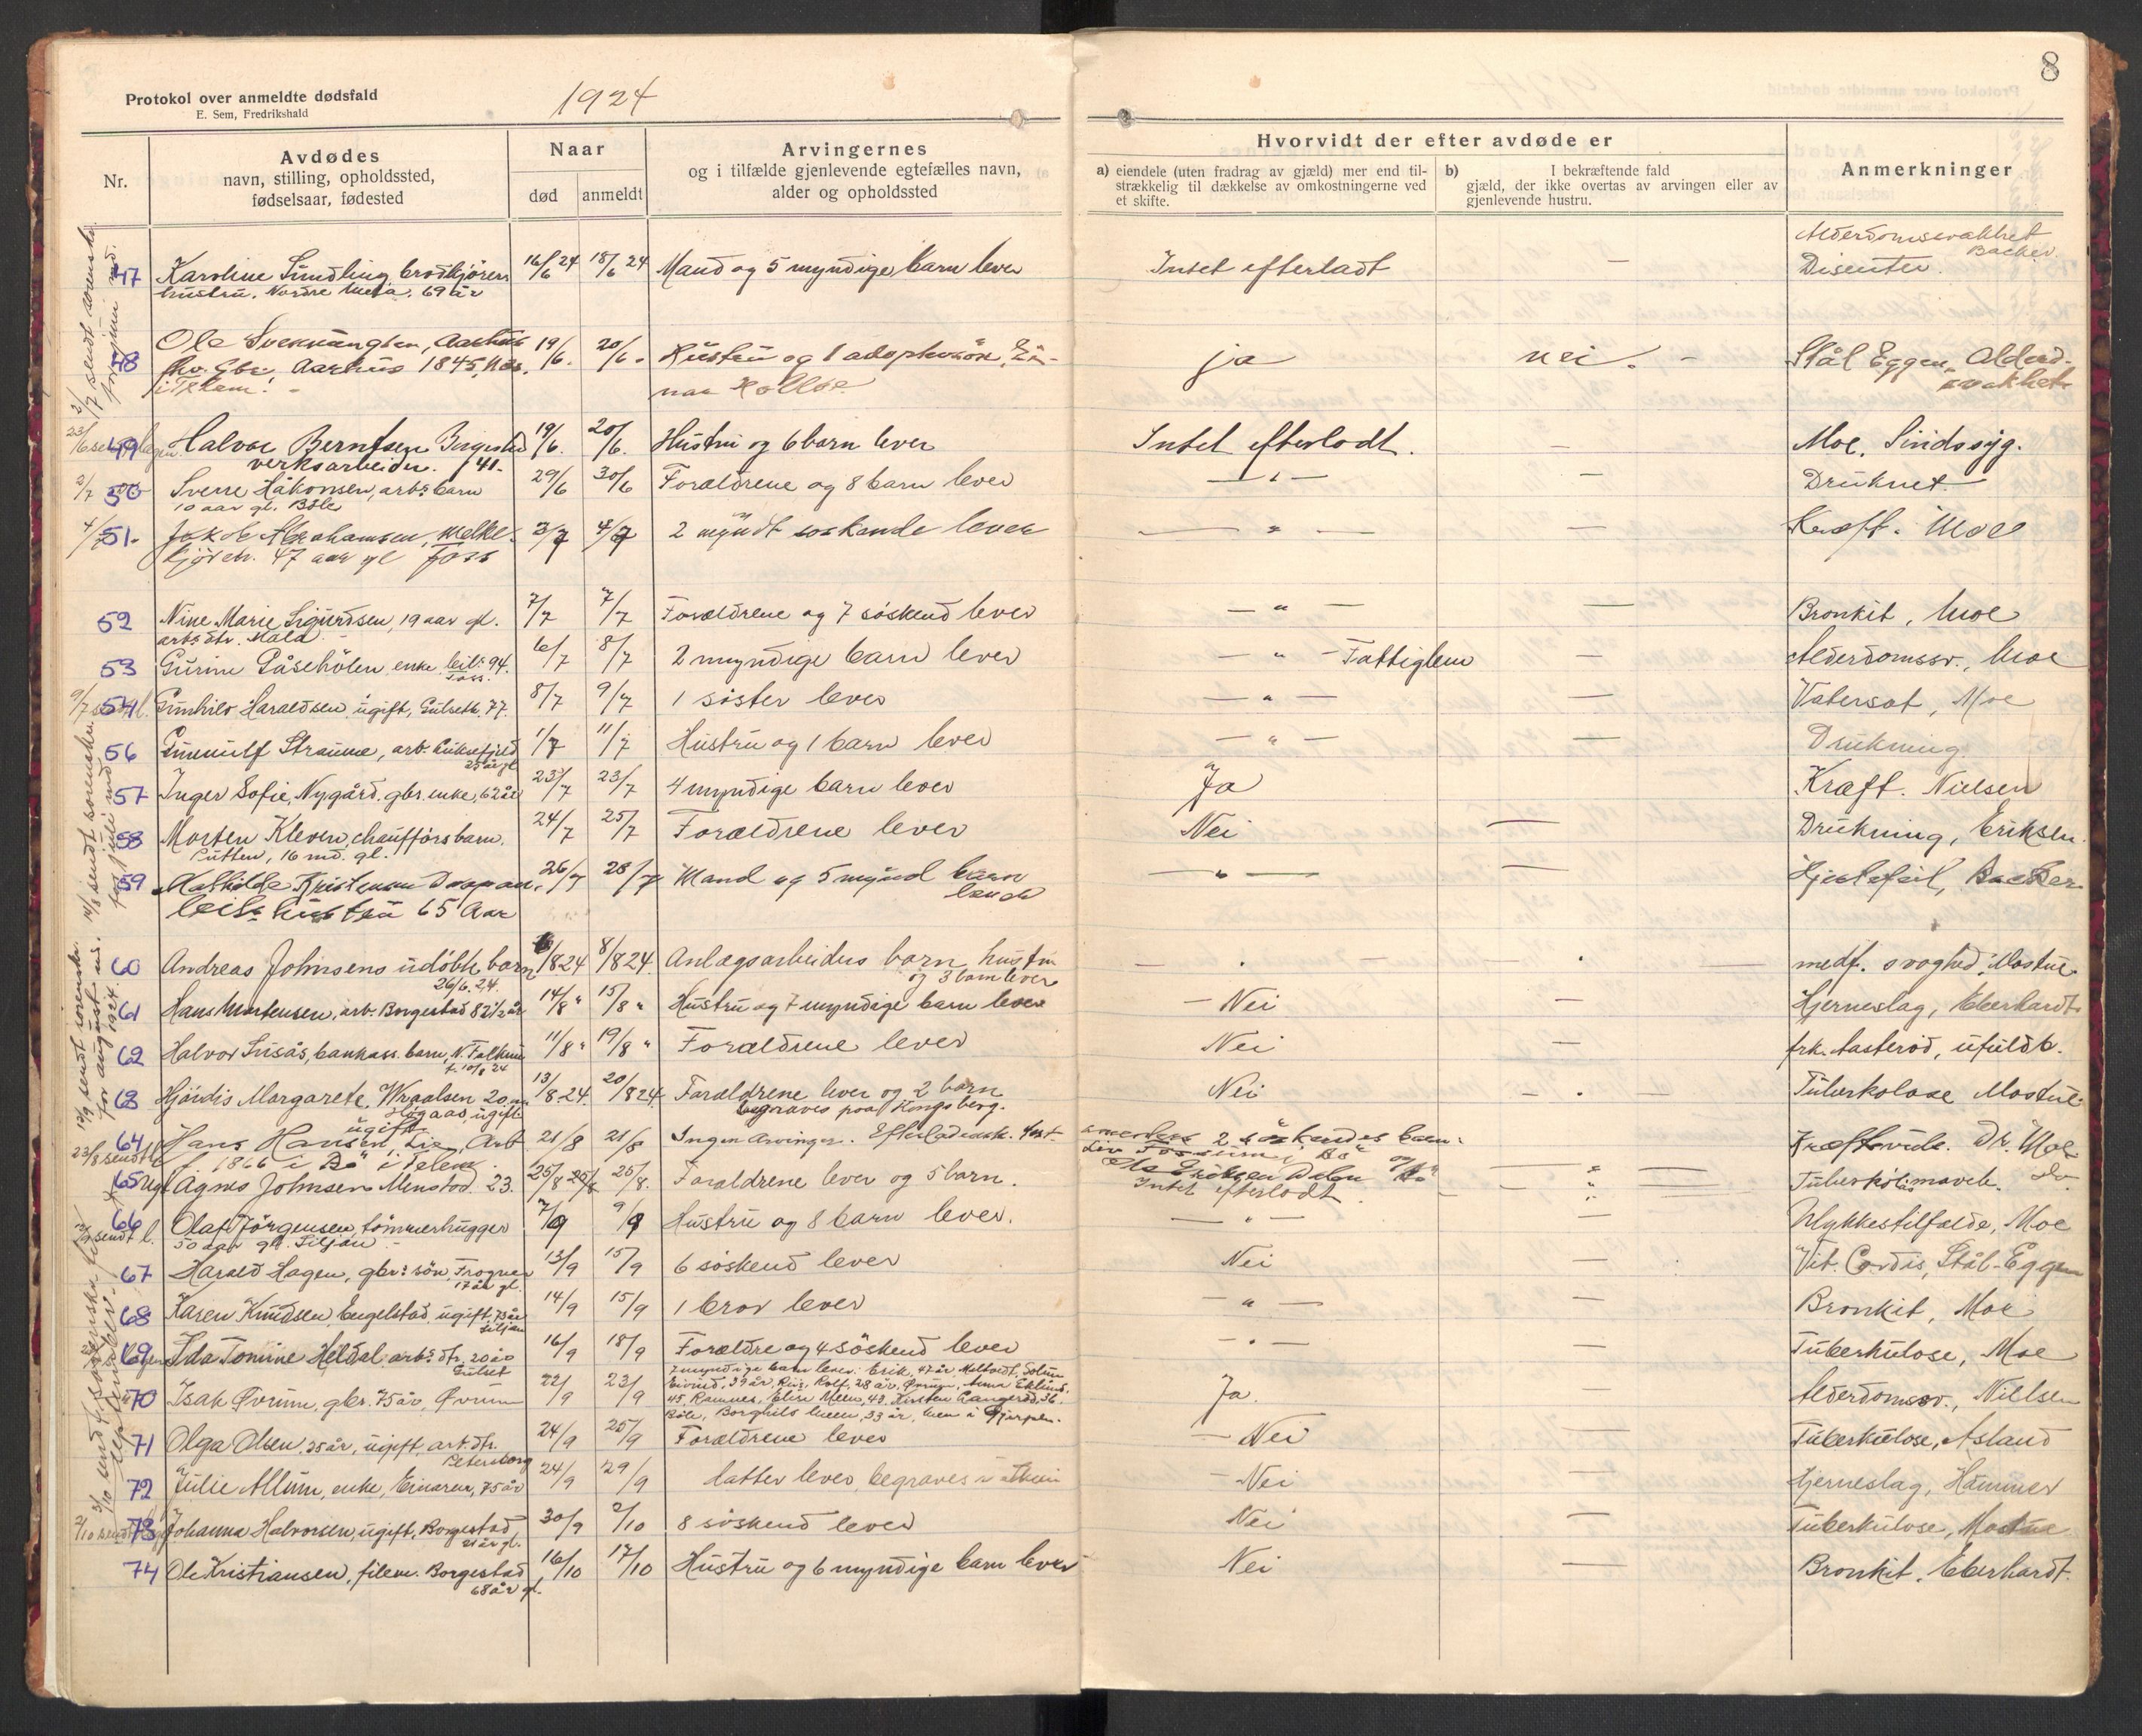 8
Protokol over anmeldte dødsfald
E. Sem, Fredrikshald
1924
Nr.
Avdødes
navn, stilling, opholdssted,
fødselsaar, fødested
Naar
død anmeldt
Arvingernes
og i tilfælde gjenlevende egtefælles navn,
alder og opholdssted
Hvorvidt der efter avdøde er
a) eiendele (uten fradrag av gjæld) mer end til-
strækkelig til dækkelse av omkostningerne ved
et skifte.
b) I bekræftende fald
gjæld, der ikke overtas av arvingen eller av
gjenlevende hustru.
Anmerkninger
47 Karoline Sundling brødkjörers 16/6 24 18/6 24 Mand og 5 myndige barn lever Intet efterladt — Disenter. Alderdomssvakhet Backer
hustru, Nordre 69 år
48 Ole Aarhus 19/6. 20/6. Hustru og 1 adoptivsön, Ei- ja nei. - Stål Eggen, Alderd-
Gbr. Aarhus 1845, nar svakhet
49 Halvor Berntsen Borgestad 19/6. 20/6. Hustru og 6 barn lever Intet efterlodt. — Moe, Sindssyg.
verksarbeider. f 41.
2/7 50 Sverre Håkonsen, arbs barn 29/6 30/6 Forældrene og 8 barn lever — " — — Druknet
10 aar gl. Böle
4/7 51. Jakob Abrahamsen, melke- 3/7 4/7 2 myndt söskende lever — " — — Kræft. Moe
kjörer. 47 aar gl Foss
52 Nine Marie Sigurdsen, 19 aar gl. 7/7 7/7 Forældrene og 7 söskend lever — " — — Bronkit, Moe
arbs dtr. Mæla
53 Gurine Gåsehölen enke leil. 94. 6/7 8/7 2 myndige barn lever — " — Fattiglem — Alderdomssv., Moe
Foss.
9/7 54 Gunhild Haraldsen, ugift, Gulseth. 77. 8/7 9/7 1 söster lever — " — — Vatersot, Moe
56 Gunnulf Straume, arb. Luksefjeld 1/7 11/7 Hustru og 1 barn lever — " — — Drukning
25 år gl
57 Inger Sofie Nygård, gbr. enke, 62 år 23/7 23/7 4 myndige barn lever Ja Kræft. Nielsen
58 Morten Kleven, chauffförs barn, 24/7 25/7 Forældrene lever Nei — Drukning, Eriksen.
Putten, 16 md. gl.
59 Mathilde Kristensen 26/7 28/7 Mand og 5 mynd barn — " — — Hjertefeil, Backer
leil. hustru 65 Aar lever
60 Andreas Johnsens udöbte barn 6/8 24 8/8 24. Anlægsarbeiders barn, hustru — . — . medf. svaghed, Mostue
26/6.24. og 3 barn lever
61 Hans Mortensen, arb. Borgestad 82 1/2 år 14/8 " 15/8 " Hustru og 7 myndige barn lever — Nei — Hjerneslag, Eberhardt
62 Halvor Lusås, bankass. barn, N. Falkum 11/8 " 19/8 " Forældrene lever Nei — frk. Aasteröd, ufuldb.
f. 10/8 24
63 Hjördis Margarete Wraalsen 20 13/8 24. 20/8 24. Forældrene lever og 2 barn Nei — . — Tuberkolose Mostue
ugift begraves paa Kongsberg.
64 Hans Hansen Lie, Arb 21/8 21/8 Ingen Arvinger. Kræftsvulst. Dr. Moe
f. 1866 i Bö i Telem
65 Agnes Johnsen Menstad 23. 25/8 25/8. Forældrene lever og 5 barn. Intet efterlodt — " — Tuberkulös do
13/9 sendt l. 66 Olaf Jörgensen, tömmerhugger 7/9 9/9 Hustru og 8 barn lever. — " — — Ulykkestilfælde, Moe
50 aar gl. Siljan
67 Harald Hagen, gbrs sön, Frogner 13/9 15/9 6 söskend lever Nei — Vit. Cordis, Stål-Eggen
17 år gl.
68 Karen Knudsen, Engelstad, ugift, 73 år 14/9 15/9 1 bror lever — " — — Bronkit, Moe
Siljan
69 Ida Tomine Heldal arbs dtr, 20 år 16/9 18/9 Forældre og 4 söskend lever — " — — Tuberkulose, Moe
Gulset
70 Isak Övrum, gbr. 75 år, Övrum 22/9 23/9 7 myndige barn lever: Erik, 47 år, Solum Ja. — Alderdomssv., Nielsen
Eivind, 39 år, Rolf, 28 år, Övrum, Anna Eklund,
45, Ramnes, Elise Moen, 43, Kirsten 36,
Böle, Borghild Moen, 33 år, Gjerpen.
71 Olga Olsen, 25 år, ugift, arb. dtr. 24/9 25/9 Forældrene lever — Nei — Tuberkulose, Asland
Petersborg
72 Julie Allum, enke, Einaren, 75 år 24/9 29/9 datter lever, begraves — Nei — Hjerneslag, Hammer
2/10 73 Johanne Halvorsen, ugift, Borgestad, 30/9 2/10 8 söskend lever Nei — Tuberkulose, Mostue
21 år gl.
74 Ole Kristiansen, filem. Borgestad 16/10 17/10 Hustru og 6 myndige barn lever Nei — Bronkit, Eberhardt.
68 år gl.